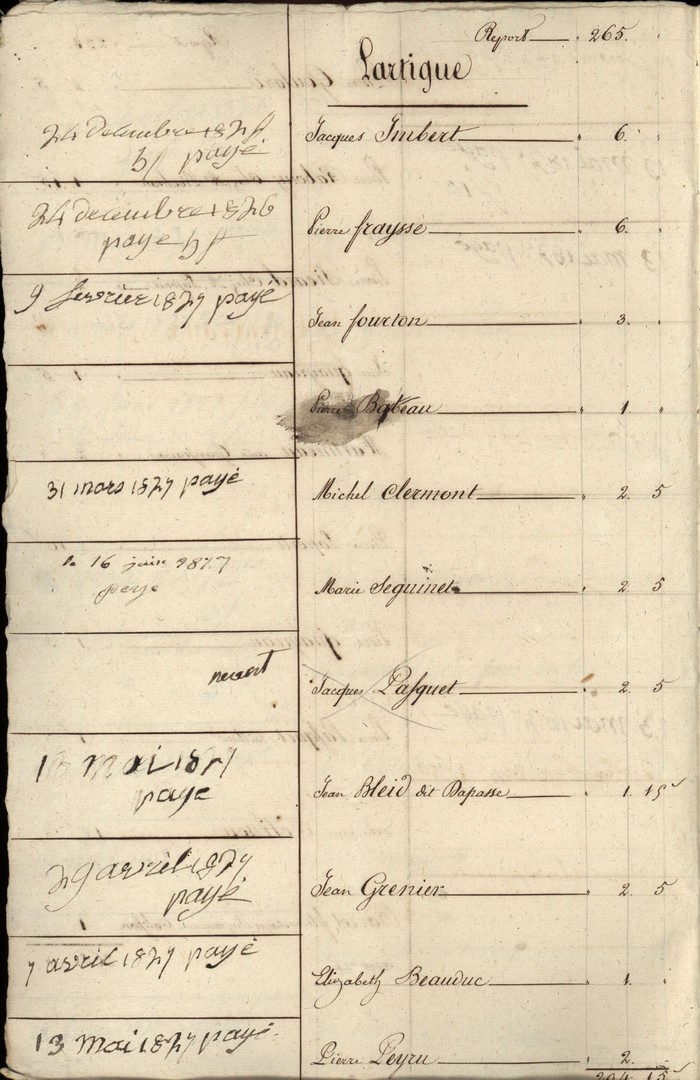 Report 265.
Lartigue
24 decembre 182
payé
Jacques Imbert 6.
24 decembre 1826
paye
Pierre fraysse 6.
9 fevrier 1827 payé
Jean fourton 3.
Pierre Bateau 1.
31 mars 1827 payé
Michel Clermont 2. 5
le 16 juin 1827
paye
Marie Seguinet 2. 5
Jacques Pasquet 2. 5
13 mai 1827
paye
Jean Bleid dit Dapasse 1. 15
29 avril 1827
payé
Jean Grenier 2. 5
7 avril 1827 payé
Elizabeth Beauduc 1.
13 Mai 1827 payé
Pierre Peyru 2.
294. 15